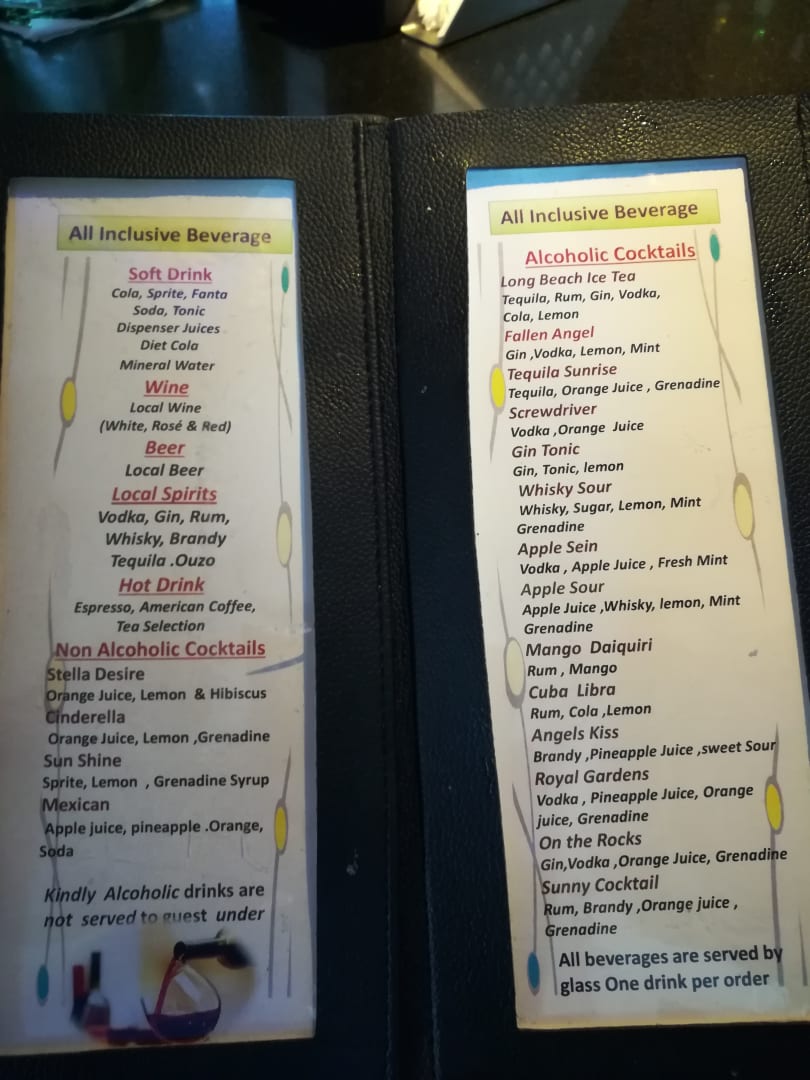 All Inclusive Beverage
Soft Drink
Cola, Sprite, Fanta
Soda, Tonic
Dispenser Juices
Diet Cola
Mineral Water
Wine
Local Wine
(White, Rosé & Red)
Beer
Local Beer
Local Spirits
Vodka, Gin, Rum,
Whisky, Brandy
Tequila .Ouzo
Hot Drink
Espresso, American Coffee,
Tea Selection
Non Alcoholic Cocktails
Stella Desire
Orange Juice, Lemon & Hibiscus
Cinderella
Orange Juice, Lemon ,Grenadine
Sun Shine
Sprite, Lemon , Grenadine Syrup
Mexican
Apple juice, pineapple .Orange,
Soda
Kindly Alcoholic drinks are
not served to guest under
All Inclusive Beverage
Alcoholic Cocktails
Long Beach Ice Tea
Tequila, Rum, Gin, Vodka,
Cola, Lemon
Fallen Angel
Gin ,Vodka, Lemon, Mint
Tequila Sunrise
Tequila, Orange Juice , Grenadine
Screwdriver
Vodka ,Orange Juice
Gin Tonic
Gin, Tonic, lemon
Whisky Sour
Whisky, Sugar, Lemon, Mint
Grenadine
Apple Sein
Vodka , Apple Juice , Fresh Mint
Apple Sour
Apple Juice ,Whisky, lemon, Mint
Grenadine
Mango Daiquiri
Rum , Mango
Cuba Libra
Rum, Cola ,Lemon
Angels Kiss
Brandy ,Pineapple Juice ,sweet Sour
Royal Gardens
Vodka , Pineapple Juice, Orange
juice, Grenadine
On the Rocks
Gin,Vodka ,Orange Juice, Grenadine
Sunny Cocktail
Rum, Brandy ,Orange juice ,
Grenadine
All beverages are served by
glass One drink per order